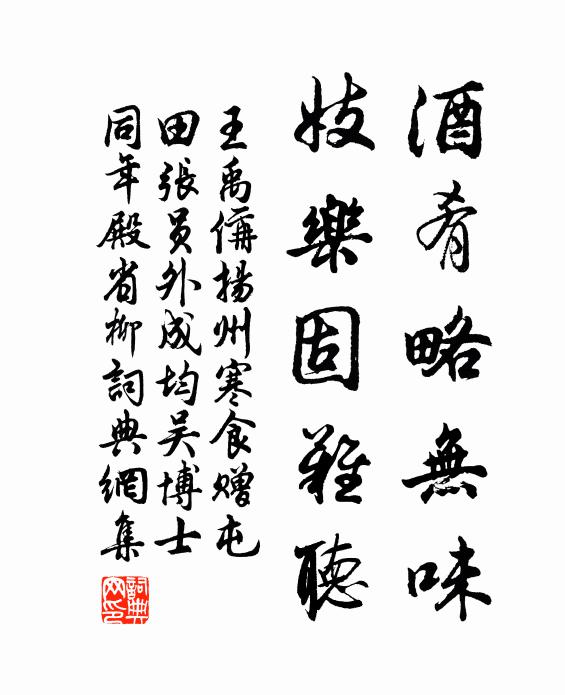 酒肴略無味
妓樂固難聽
王禹偁揚州寒食贈屯
田張員外成均吳博士
同年殿省柳詞典網集
詞典网印